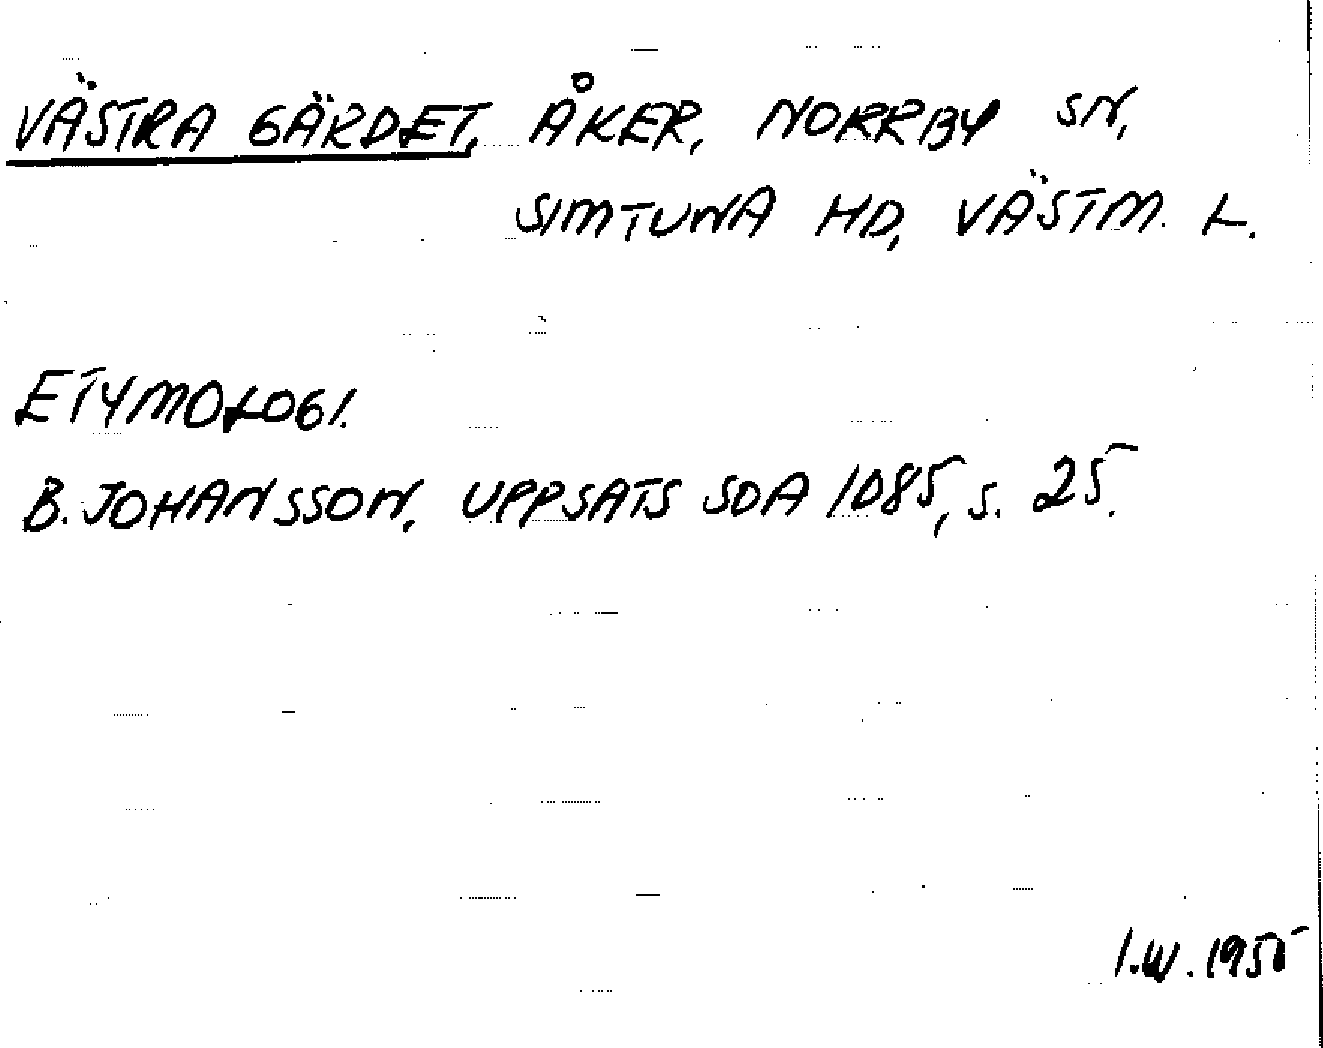 VÄSTRA GÄRDET, ÅKER, NORRBY SN,
SIMTUNA HD, VÄSTM. L.
ETYMOLOGI.
B. JOHANSSON, UPPSATS SDA 1085, S. 25.
I.W. 1955